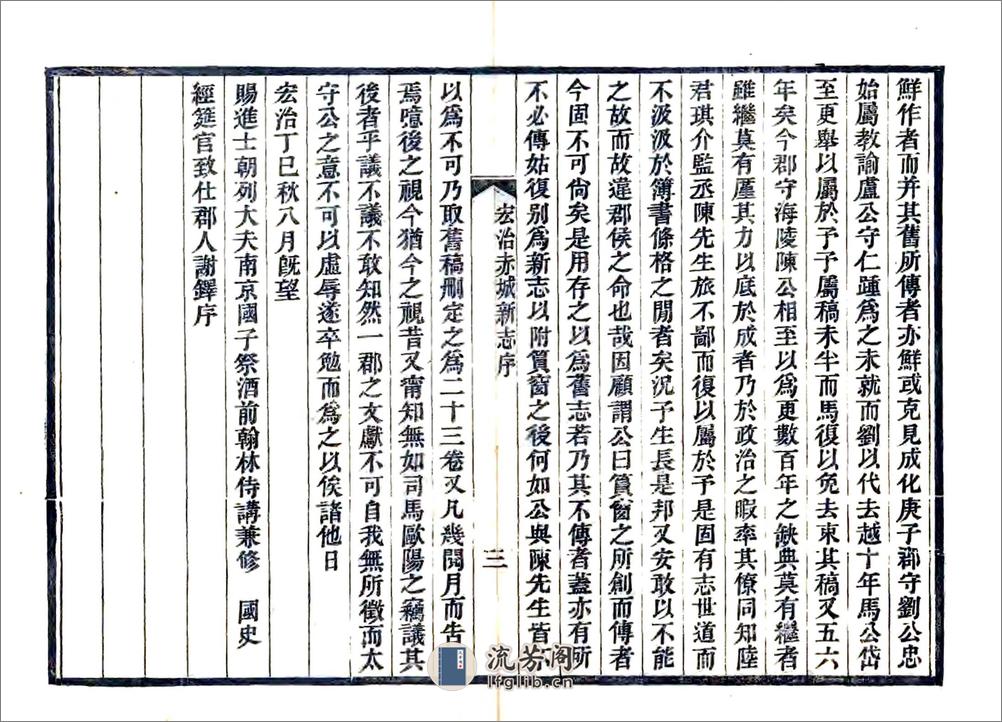 鮮作者而并其舊所傳者亦鮮或克見成化庚子郡守劉公忠
始屬教諭盧公守仁踵爲之未就而劉以代去越十年馬公岱
至更舉以屬於予予屬稿未半而馬復以免去束其稿又五六
年矣今郡守海陵陳公相至以爲更數百年之缺典莫有繼者
雖繼莫有厪其力以底於成者乃於政治之暇率其僚同知陸
君琪介監丞陳先生旅不鄙而復以屬於予是固有志世道而
不汲汲於簿書條格之閒者矣況予生長是邦又安敢以不能
之故而故違郡侯之命也哉因顧謂公曰篔窗之所創而傳者
今固不可尙矣是用存之以爲舊志若乃其不傳者蓋亦有所
不必傳姑復别爲新志以附篔窗之後何如公與陳先生皆
宏治赤城新志序
三
以爲不可乃取舊稿刪定之爲二十三卷又凡幾閱月而告
焉噫後之視今猶今之視昔又甯知無如司馬歐陽之竊議其
後者乎議不議不敢知然一郡之文獻不可自我無所徵而太
守公之意不可以虛辱遂卒勉而爲之以俟諸他日
宏治丁巳秋八月旣望
賜進士朝列大夫南京國子祭酒前翰林侍講兼修 國史
經筵官致仕郡人謝鐸序
流芳阁
lfglib.cn